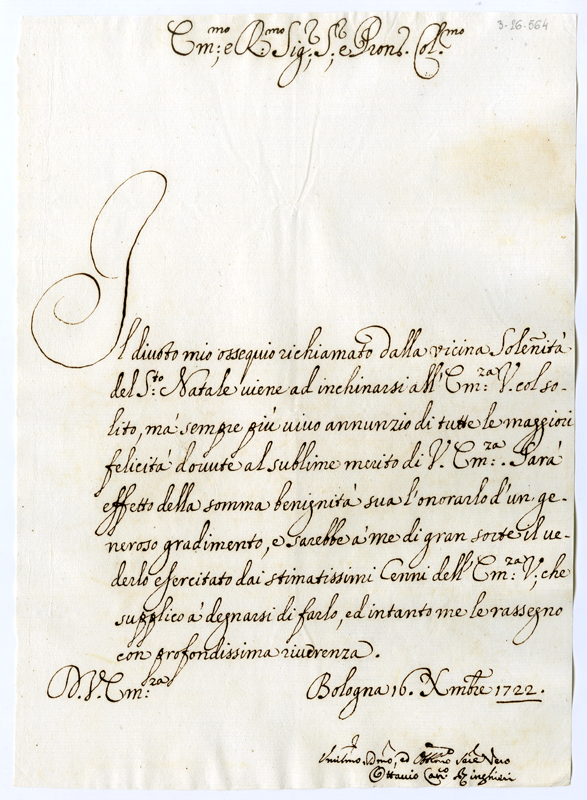 3-26-564
Em:mo e R:mo Sig:r S:r e Prone Col:mo
Il divoto mio ossequio richiamato dalla vicina Solen̄ità
del S:to Natale viene ad inchinarsi all'Em:za V. col so-
lito, mà sempre più vivo annunzio di tutte le maggiori
felicità dovute al sublime merito di V. Em:za. Sarà
effetto della somma benignità sua l'onorarlo d'un ge-
neroso gradimento, e sarebbe à me di gran sorte il ve-
derlo esercitato dai stimatissimi Cenni dell'Em:za V; che
supplico à degnarsi di farlo, ed intanto me le rassegno
con profondissima riverenza.
D. V. Em:za
Bologna 16. Xmbre 1722.
Umilmo, Dmo, ed Obblmo Serre Vero
Ottavio Can:co Ringhieri